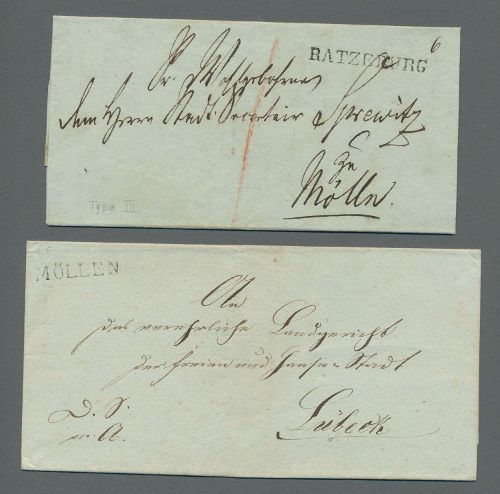 6
RATZEBURG
Sr. Wohlgebohren
dem Herrn Stadt Secretair Sprewitz
zu
Mölln.
Type III
MÖLLEN
An
das verehrliche Landgericht
der freien und Hanse-Stadt
Lübeck
D. S.
m. A.